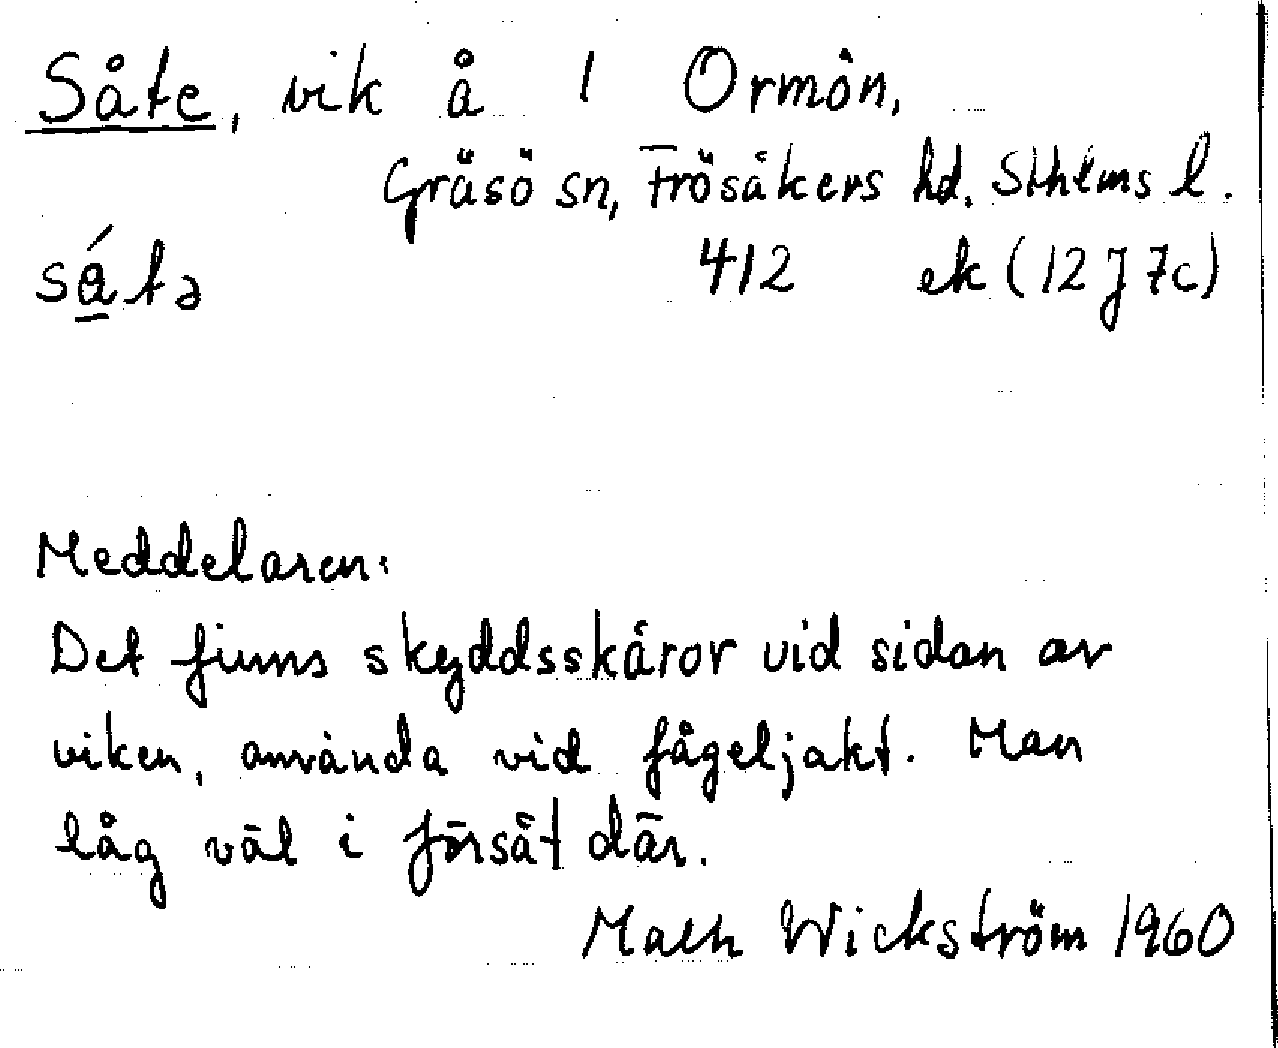 Såte, vik å 1 Ormön,
Gräsö sn, Frösåkers hd. Sthlms l.
sǻtə 412 ek (12 J 7c)
Meddelaren:
Det finns skyddsskåror vid sidan av
viken, använda vid fågeljakt. Man
låg väl i försåt där.
Wickström 1960